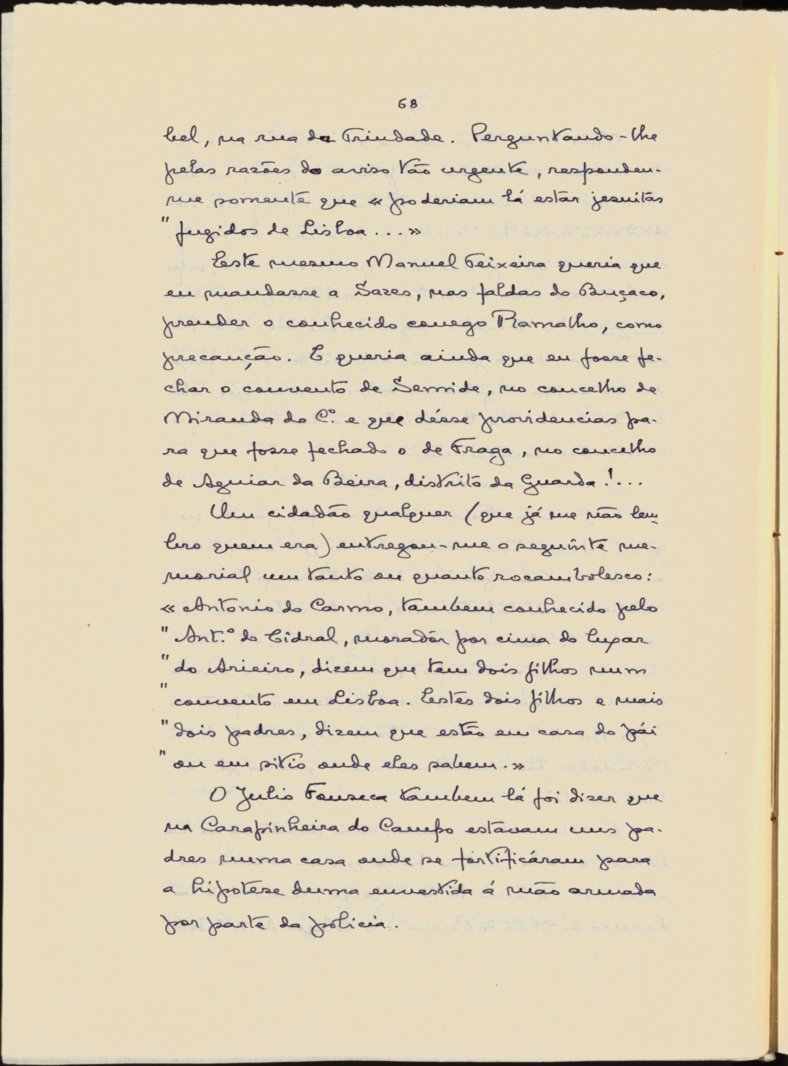 68
bel, na rua da Trindade. Perguntando-lhe
pelas razões do aviso tão urgente, respondeu-
me somente que « poderiam lá estar jesuitas
" fugidos de Lisboa ... »
Este mesmo Manuel Teixeira queria que
eu mandasse a Sazes, nas faldas do Buçaco,
prender o conhecido conego Ramalho, como
precaução. E queria ainda que eu fosse fe-
char o convento de Semide, no concelho de
Miranda do C.º e que désse providencias pa-
ra que fosse fechado o de Fraga, no concelho
de Aguiar da Beira, distrito da Guarda!...
Um cidadão qualquer (que já me não lem-
bro quem era) entregou-me o seguinte me-
morial um tanto ou quanto rocambolesco:
« Antonio do Carmo, tambem conhecido pelo
" Ant.º do Cidral, moradôr por cima do lugar
" do Arieiro, dizem que tem dois filhos num
" convento em Lisboa. Estes dois filhos e mais
" dois padres, dizem que estão em casa do pái
" ou em sitio onde eles sabem. »
O Julio Fonseca tambem lá foi dizer que
na Carapinheira do Campo estavam uns pa-
dres numa casa onde se fortificáram para
a hipotese duma envestida á mão armada
por parte da policia.